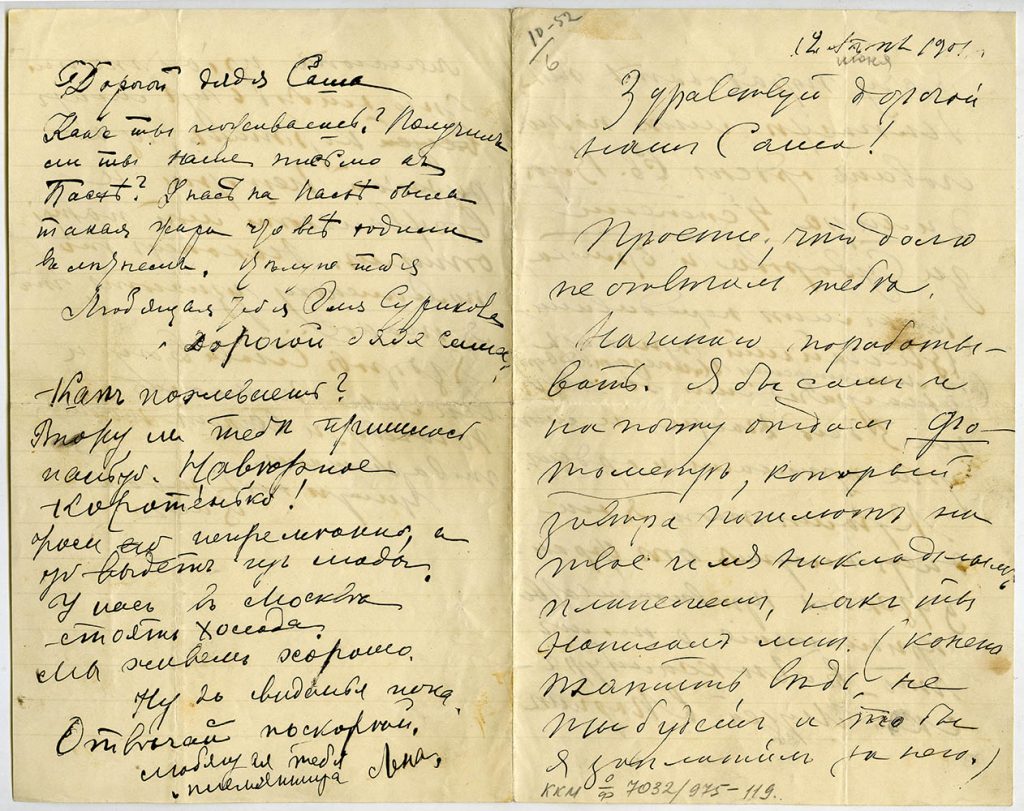 Дорогой дядя Саша
Какъ ты поживаешь? Получилъ
ли ты наше письмо къ
Пасхѣ? У насъ на Пасхѣ была
такая жара что всѣ ходили
въ лѣтнемъ. Цѣлую тебя
Любящая тебя Оля Сурикова
Дорогой дядя Саша.
Какъ поживаешъ?
Впору ли тебѣ пришлось
Навѣрное
коротенько!
а
то выдетъ изъ моды.
У насъ въ Москвѣ
стоятъ холода.
Мы живемъ хорошо.
Ну до виданья пока.
Отвѣчай поскорѣй.
любящая тебя
племянница Лена.
10-52
6
12 1901.
июня
Здравствуй дорогой
нашъ Саша!
Прости, что долго
не отвѣтилъ тебѣ.
Начинаю поработы-
вать. Я бы самъ и
на почту отдалъ фо-
тометръ, который
завтра пошлютъ на
твое имя накладнымъ
платежемъ, какъ ты
написалъ мнѣ. (конечно
платить вѣдь не
ты будешь а то бы
я заплатилъ за него.)
ККМ о/ф 7032/975-119.